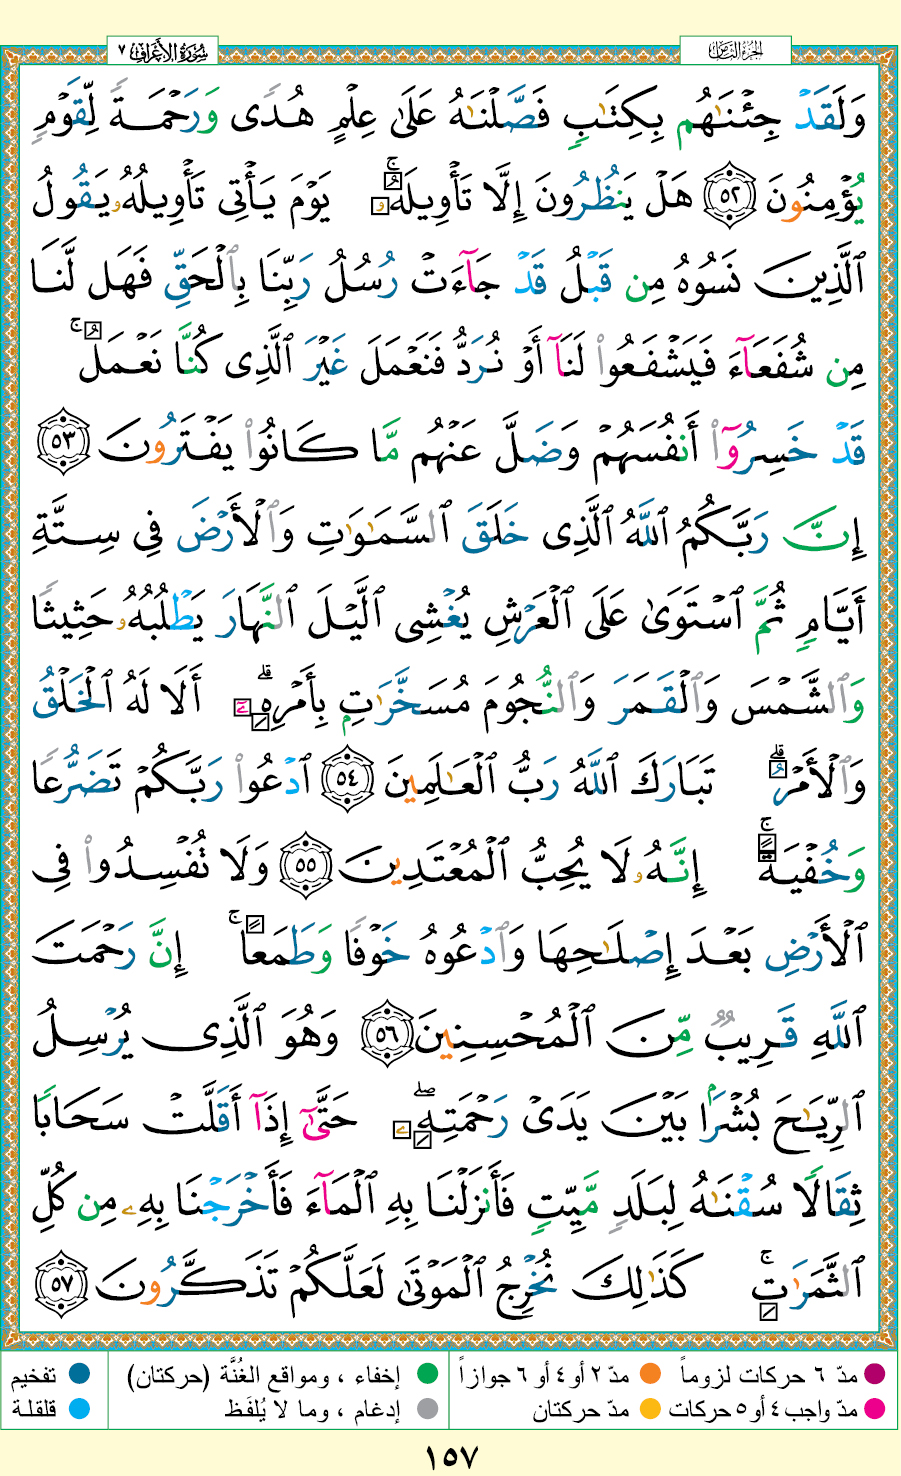 سُورَةُ الأَعْرَافِ ٧
الجُزْءُ الثَّامِن
وَلَقَدْ جِئْنَٰهُم بِكِتَٰبٍ فَصَّلْنَٰهُ عَلَىٰ عِلْمٍ هُدًى وَرَحْمَةً لِّقَوْمٍ
يُؤْمِنُونَ ٥٢ هَلْ يَنظُرُونَ إِلَّا تَأْوِيلَهُۥ ۚ يَوْمَ يَأْتِى تَأْوِيلُهُۥ يَقُولُ
ٱلَّذِينَ نَسُوهُ مِن قَبْلُ قَدْ جَآءَتْ رُسُلُ رَبِّنَا بِٱلْحَقِّ فَهَل لَّنَا
مِن شُفَعَآءَ فَيَشْفَعُوا۟ لَنَآ أَوْ نُرَدُّ فَنَعْمَلَ غَيْرَ ٱلَّذِى كُنَّا نَعْمَلُ ۚ
قَدْ خَسِرُوٓا۟ أَنفُسَهُمْ وَضَلَّ عَنْهُم مَّا كَانُوا۟ يَفْتَرُونَ ٥٣
إِنَّ رَبَّكُمُ ٱللَّهُ ٱلَّذِى خَلَقَ ٱلسَّمَٰوَٰتِ وَٱلْأَرْضَ فِى سِتَّةِ
أَيَّامٍ ثُمَّ ٱسْتَوَىٰ عَلَى ٱلْعَرْشِ يُغْشِى ٱلَّيْلَ ٱلنَّهَارَ يَطْلُبُهُۥ حَثِيثًا
وَٱلشَّمْسَ وَٱلْقَمَرَ وَٱلنُّجُومَ مُسَخَّرَٰتٍ بِأَمْرِهِۦٓ ۗ أَلَا لَهُ ٱلْخَلْقُ
وَٱلْأَمْرُ ۗ تَبَارَكَ ٱللَّهُ رَبُّ ٱلْعَٰلَمِينَ ٥٤ ٱدْعُوا۟ رَبَّكُمْ تَضَرُّعًا
وَخُفْيَةً ۚ إِنَّهُۥ لَا يُحِبُّ ٱلْمُعْتَدِينَ ٥٥ وَلَا تُفْسِدُوا۟ فِى
ٱلْأَرْضِ بَعْدَ إِصْلَٰحِهَا وَٱدْعُوهُ خَوْفًا وَطَمَعًا ۚ إِنَّ رَحْمَتَ
ٱللَّهِ قَرِيبٌ مِّنَ ٱلْمُحْسِنِينَ ٥٦ وَهُوَ ٱلَّذِى يُرْسِلُ
ٱلرِّيَٰحَ بُشْرًۢا بَيْنَ يَدَىْ رَحْمَتِهِۦ ۖ حَتَّىٰٓ إِذَآ أَقَلَّتْ سَحَابًا
ثِقَالًا سُقْنَٰهُ لِبَلَدٍ مَّيِّتٍ فَأَنزَلْنَا بِهِ ٱلْمَآءَ فَأَخْرَجْنَا بِهِۦ مِن كُلِّ
ٱلثَّمَرَٰتِ ۚ كَذَٰلِكَ نُخْرِجُ ٱلْمَوْتَىٰ لَعَلَّكُمْ تَذَكَّرُونَ ٥٧
مدّ ٦ حركات لزوماً مدّ ٢ أو ٤ أو ٦ جوازاً إخفاء ، ومواقع الغُنَّة (حركتان) تفخيم
مدّ واجب ٤ أو ٥ حركات مدّ حركتان إدغام ، وما لا يُلفَظ قلقلة
١٥٧